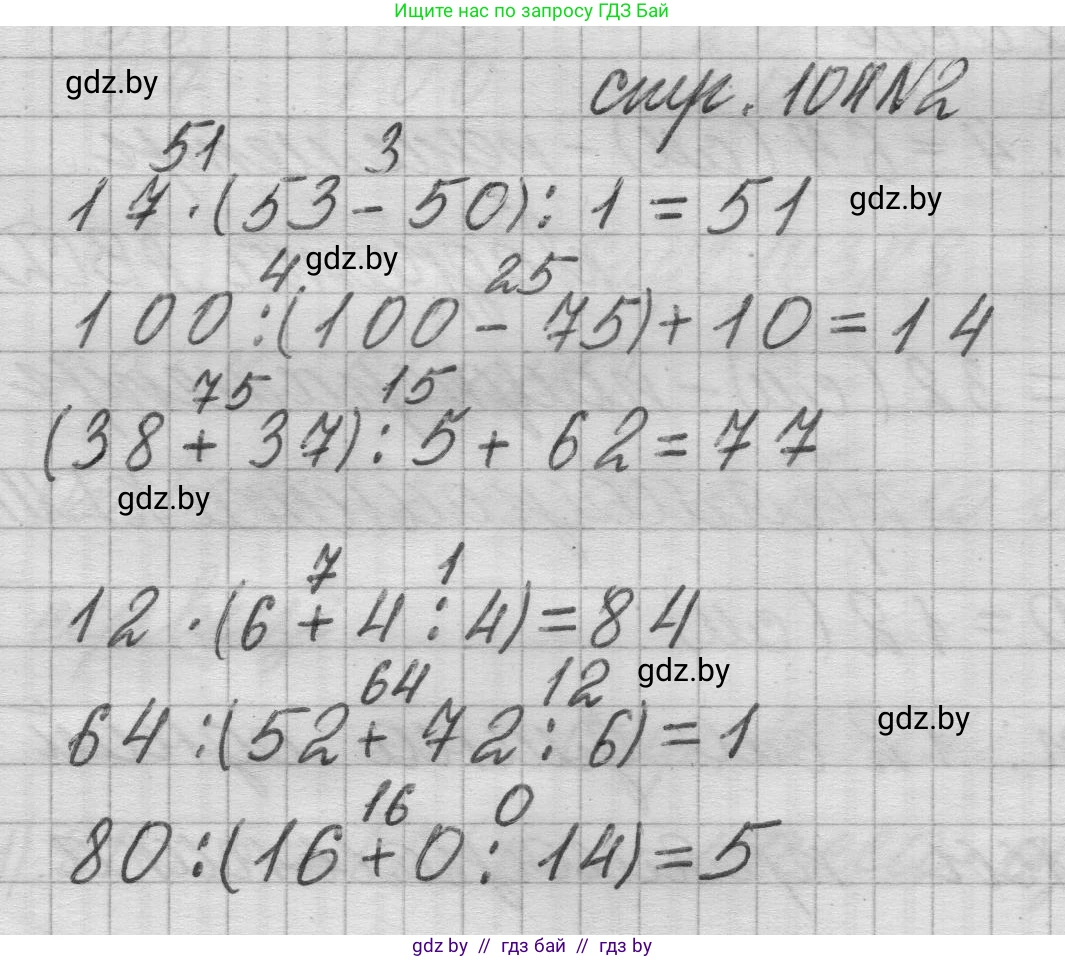 Ищите нас по запросу ГДЗ Бай
gdz.by
стр. 104 №2
51 3
17 · (53 - 50) : 1 = 51
gdz.by
4 gdz.by 25
100 : (100 - 75) + 10 = 14
75 15
(38 + 37) : 5 + 62 = 77
gdz.by
7 1
12 · (6 + 4 : 4) = 84
64 12 gdz.by
64 : (52 + 72 : 6) = 1
gdz.by
16 0
80 : (16 + 0 : 14) = 5
gdz by // гдз бай // гдз by